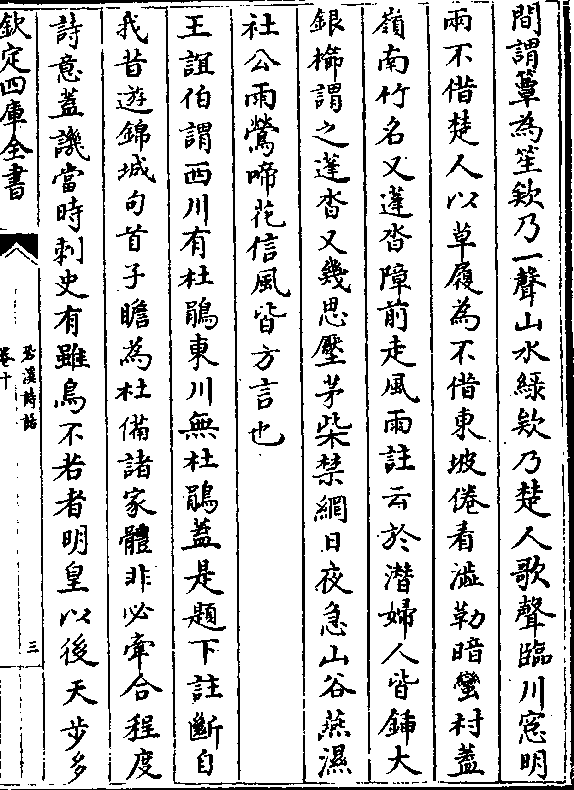 間謂蕈為笙欸乃一聲山水綠欸乃楚人歌聲臨川窓明
兩不借楚人以草履為不借東坡倦看澁勒暗蠻村蓋
嶺南竹名又蓬沓障前走風雨註云於潛婦人皆鍤大
銀櫛謂之蓬沓又幾思壓茅柴禁網日夜急山谷燕濕
社公雨鶯啼花信風皆方言也
王誼伯謂西川有杜鵑東川無杜鵑蓋是題下註斷自
我昔遊錦城句首子瞻為杜備諸家體非必牽合程度
詩意蓋譏當時刺史有雖鳥不若者明皇以後天步多
欽定四庫全書
䂬溪詩話
卷十
三